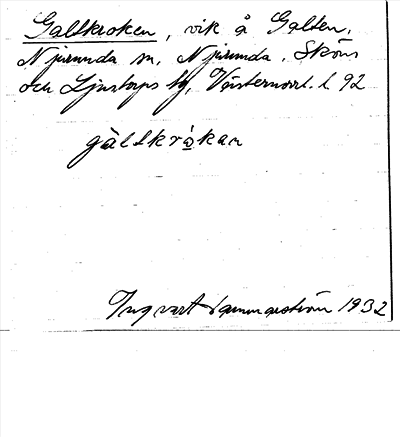 Galtkroken, vik å Galten,
Njurunda sn, Njurunda, Sköns
och Ljustorps tg, Västernorrl. l. 92
gàltkrò̠kan
Ingvart Hammarström 1932